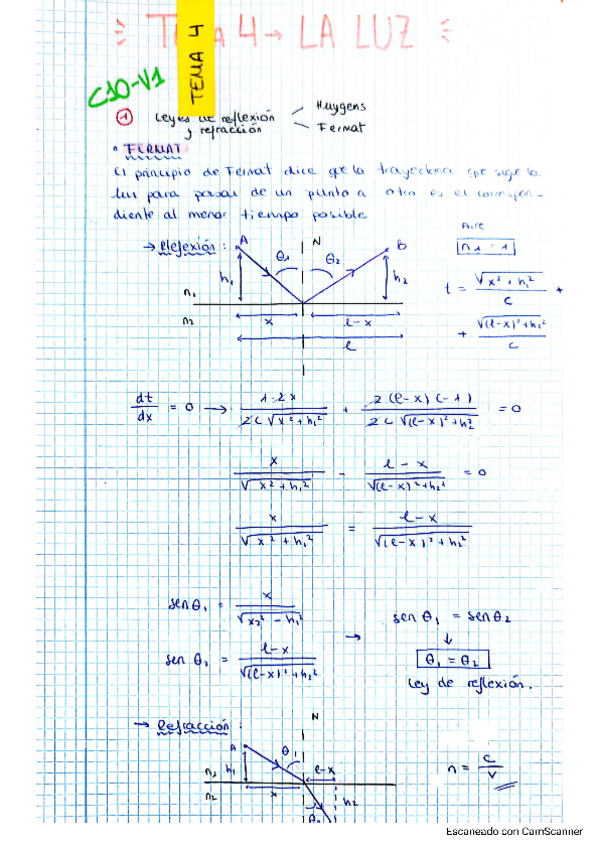 TEMA 4 → LA LUZ
TEMA 4
C10-V1
1 Leyes de reflexión y refracción
Huygens
Fermat
• FERMAT
El principio de Fermat dice que la trayectoria que sigue la
luz para pasar de un punto a otro es el correspon-
diente al menor tiempo posible
→ Reflexión:
A N B
θ1 θ2
h1 h2
n1
n2
x l-x
l
Aire
n1 = 1
t = √(x² + h1²) / c +
+ √((l-x)² + h2²) / c
dt/dx = 0 → 1·2x / 2c√(x² + h1²) + 2(l-x)(-1) / 2c√((l-x)² + h2²) = 0
x / √(x² + h1²) - l-x / √((l-x)² + h2²) = 0
x / √(x² + h1²) = l-x / √((l-x)² + h2²)
sen θ1 = x / √(x2² - h1²)
sen θ2 = l-x / √((l-x)² + h2²)
→ sen θ1 = sen θ2
↓
θ1 = θ2
Ley de reflexión.
→ Refracción:
N
A θ1
n1 h1 l-x
n2 x h2
θ2
n = c/v
Escaneado con CamScanner